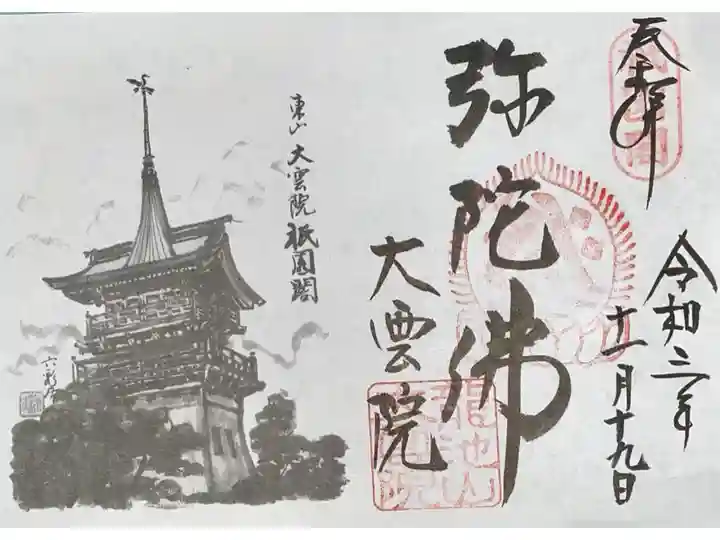 奉拝
令和三年
十一月十九日
弥陀佛
大雲院
龍池山
大雲院
東山 大雲院 祇園閣